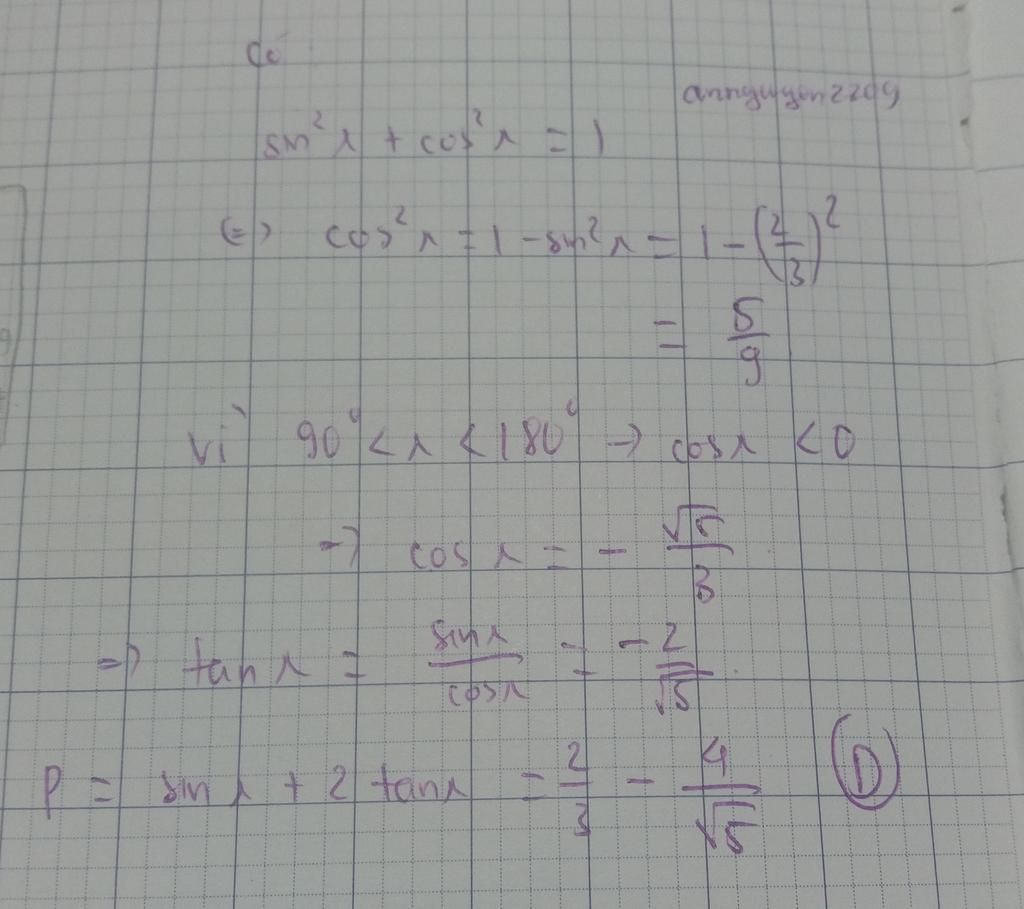 Có
annguyen2209
sin²x + cos²x = 1
(=) cos²x = 1 - sin²x = 1 - (2/3)²
= 5/9
Vì 90° < x < 180° → cosx < 0
=) cos x = - √5/3
=) tan x = sinx/cosx = -2/√5
P = sin x + 2 tanx = 2/3 - 4/√5 (D)